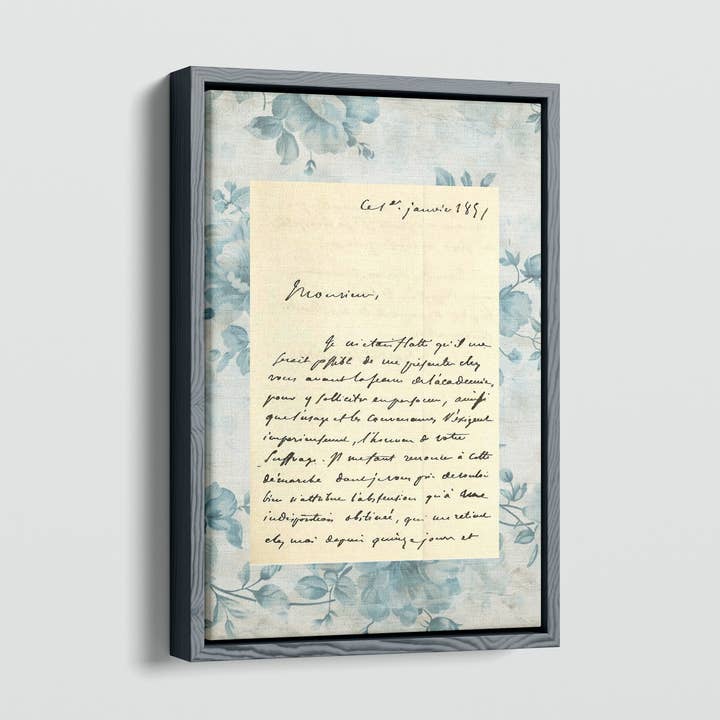 Ce 1er. janvier 1851
Monsieur,
Je m'étais flatté qu'il me
serait possible de me présenter chez
vous avant la séance de l'académie,
pour y solliciter en personne, ainsi
que l'usage et les convenances l'exigent
impérieusement, l'honneur de votre
suffrage. Il me faut renoncer à cette
démarche dont je vous prie de vouloir
bien n'attribuer l'abstension qu'à une
indisposition obstinée, qui me retient
chez moi depuis quinze jours et